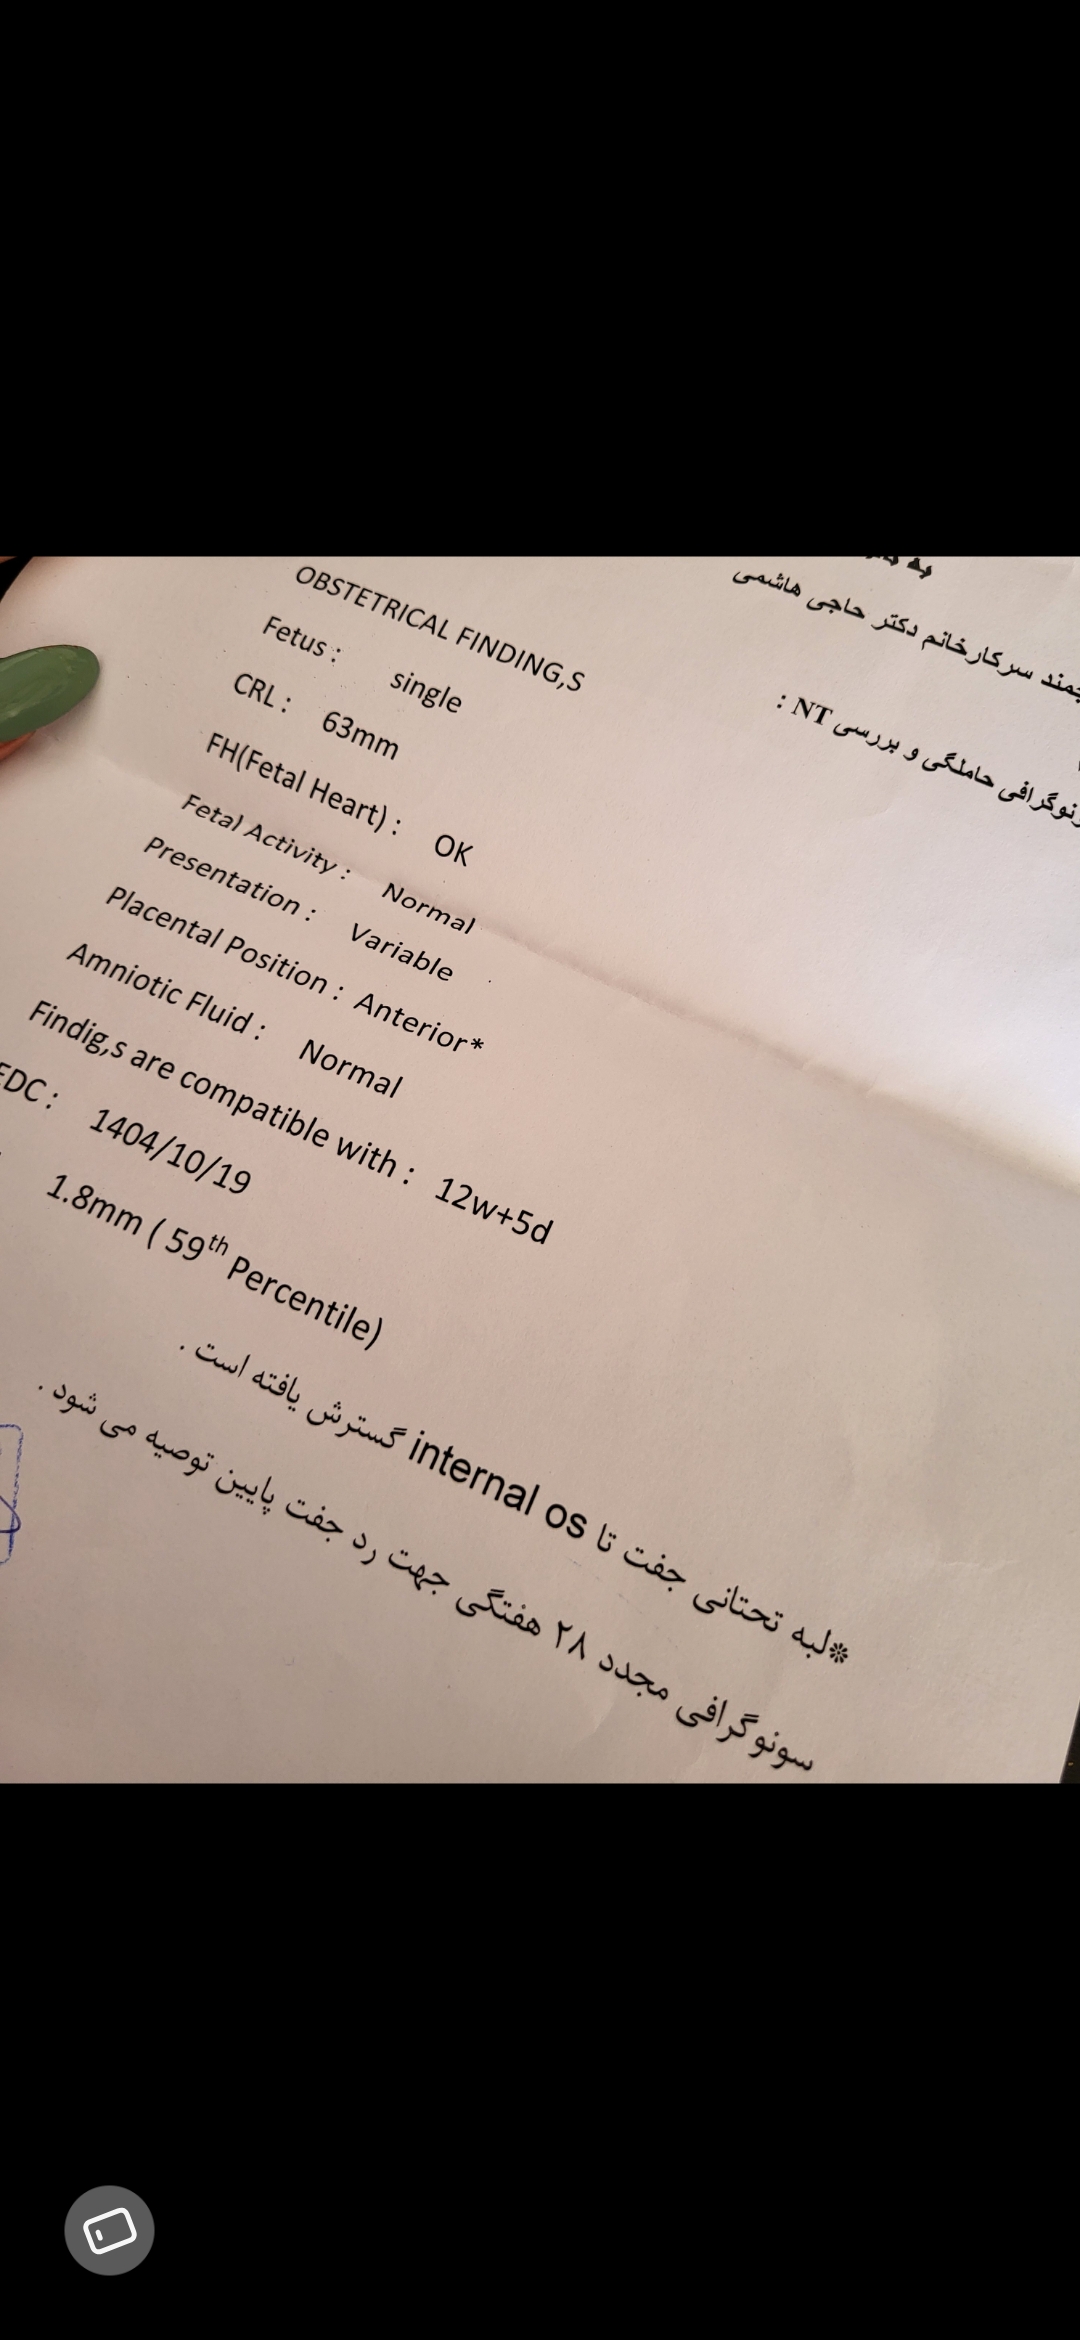 سرکارخانم دکتر حاجی هاشمی
حاملگی و بررسی NT :
OBSTETRICAL FINDING,S
Fetus : single
CRL : 63mm
FH(Fetal Heart) : OK
Fetal Activity : Normal
Presentation : Variable
Placental Position : Anterior*
Amniotic Fluid : Normal
Findig,s are compatible with : 12w+5d
EDC : 1404/10/19
1.8mm ( 59th Percentile)
*لبه تحتانی جفت تا internal os گسترش یافته است .
سونوگرافی مجدد ۲۸ هفتگی جهت رد جفت پایین توصیه می شود .